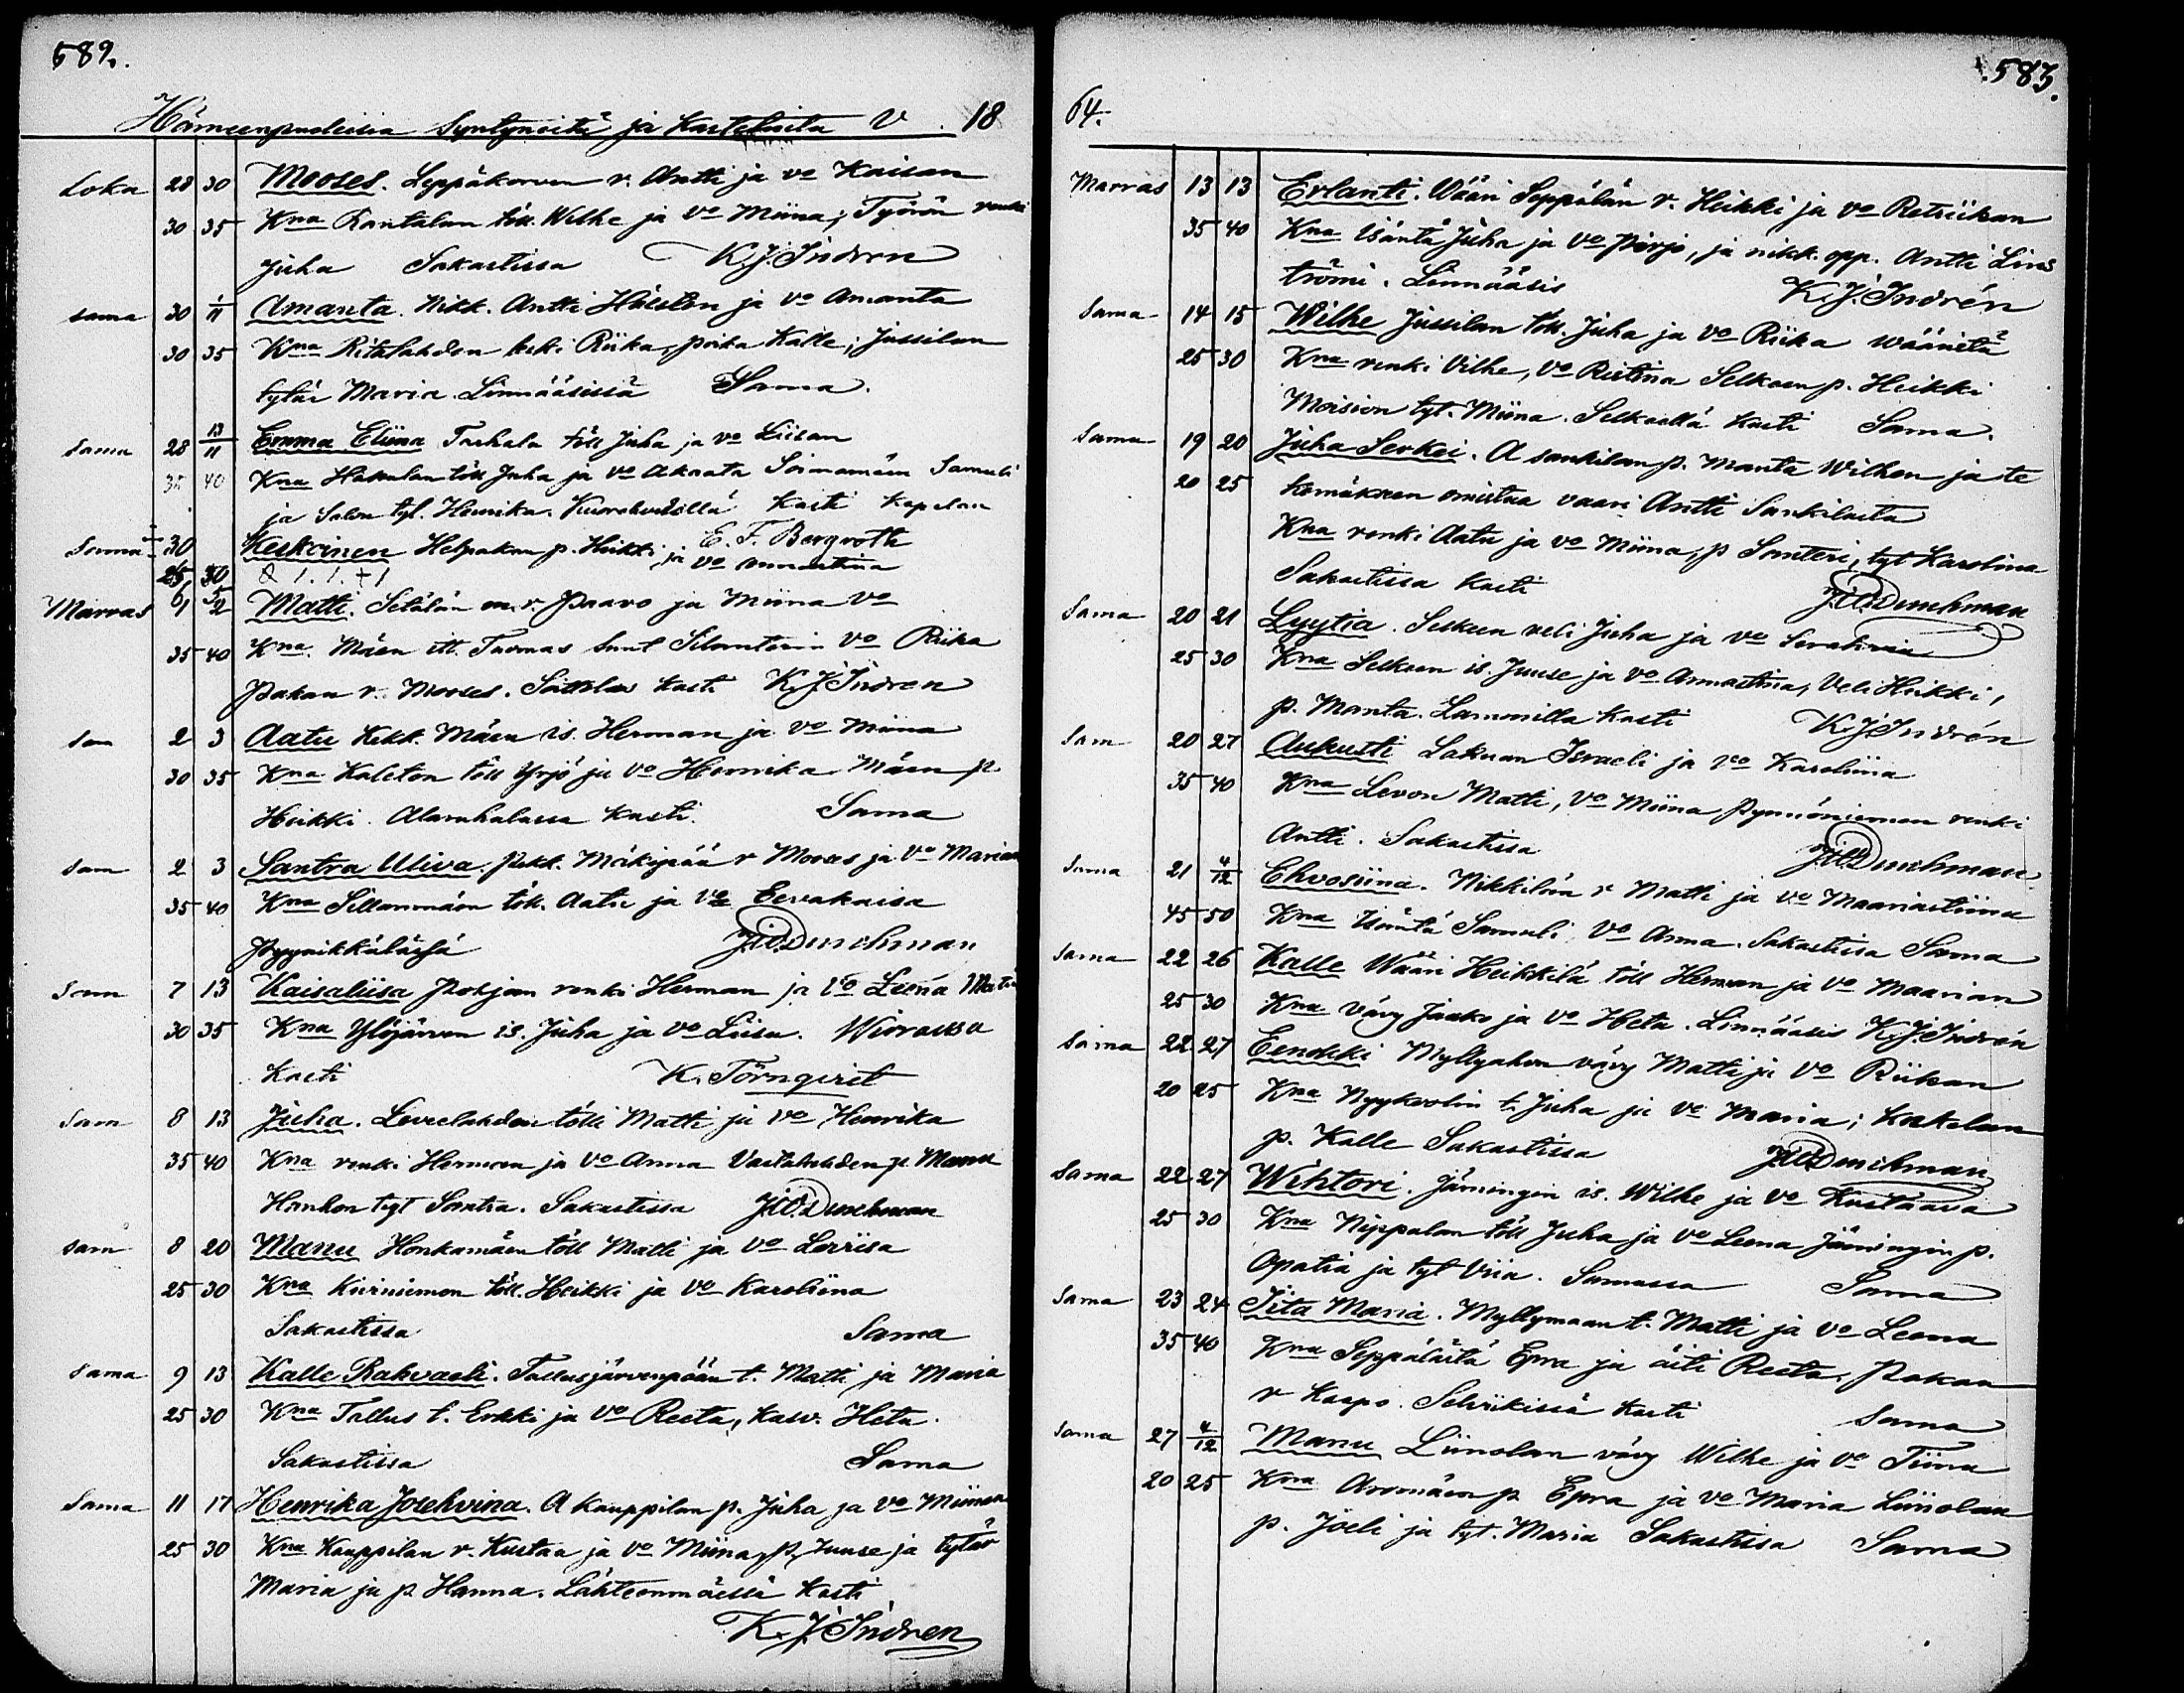 589.
Hämeenpuoleisia Syntyneitä ja Kasteluita V. 18
Loka 28 30 Mooses. Leppäkorven r. Antti ja vo Kaisan
30 35 Kna Rantalan töll. Wilhe ja Vo Miina; Työrön renki
Juha Sakastissa K.J. Indren
sama 30 1/11 Amanta. Nikk. Antti Hälsten ja vo Amanta
30 35 Kna Ritalahden leski Riika, poika Kalle; Jussilan
tytär Maria. Linnääsissä Sama.
Sama 28 13/11 Emma Eliina Tarhala töll Juha ja vo Liisan
35 40 Kna Hakulan töll Juha ja vo Akaata Soimamäen Samuli
ja Salon tyt. Henrika. Kuorehvedellä Kasti Kapelan
E. F. Bergroth
Sama 30 Keskoinen Helpakan p. Heikki ja vo Annastiina
25 30 Q 1. 1. + 1
Marras 1 2 Matti. Setälän en. r. Paavo ja Miina vo
35 40 Kna. Mäen itt. Tuomas Sunt Silanterin Vo Riika
Pakan r. Mooses. Kasti K.J. Indren
Sam 2 3 Aatu Kekk. Mäen is. Herman ja vo Miina
30 35 Kna Kaleton töll Yrjö ja Vo Henrika Mäen p
Heikki. Alaruhalassa Kasti. Sama
Sam 2 3 Santra Uliva. Pekk. Mäkipää r Mooses ja Vo Marian
35 40 Kna Sillanmäen töll. Aatu ja Vo Eevakaisa
Pyynikkälässä J.W. Durchman
Sam 7 13 Kaisaliisa Pohjan renki Herman ja Vo Leena
30 35 Kna Ylöjärven is. Juha ja vo Liisa. Wirrassa
Kasti K. Törnqvist
Sam 8 13 Juha. Leveelahden tölli Matti ja Vo Henrika
35 40 Kna renki Herman ja Vo Anna Vastalahden p Manu
Hanhon tyt Santra. Sakastissa J.W. Durchman
Sam 8 20 Manu Honkamäen töll Matti ja Vo Loviisa
25 30 Kna Kurniemen töll. Heikki ja Vo Karoliina
Sakastissa Sama
Sama 9 13 Kalle Rahvaeli. Tallusjärvenpään t. Matti ja Maria
25 30 Kna Tallus t. Erkki ja Vo Reeta, Kasv. Heta.
Sakastissa Sama
Sama 11 17 Henrika Josehvina. A Kauppilan p. Juha ja vo Miinan
25 30 Kna Kauppilan r. Kustaa ja Vo Miina, p. Juuse ja tytär
Maria ja p Hanna. Lähteenmäellä Kasti
K. J. Indren
583.
64.
Marras 13 13 Erlanti. Wääri Seppälän r. Heikki ja vo Retriikan
35 40 Kna isäntä Juha ja Vo Pirjo, ja nikk. opp. Antti Linds
trömi. Linnääsis K.J. Indrén
Sama 14 15 Wilhe Jussilan töll. Juha ja vo Riika wääristä
25 30 Kna renki Vilhe, Vo Ristina Selkeen p. Heikki
Moision tyt. Miina. Selkeellä Kasti Sama.
Sama 19 20 Juha Serkei. A Sankilan p. Manta Wilhen ja te
20 25 komäkseen omistaa vaari Antti Sankilasta
Kna renki Aatu ja vo Miina, p Santeri, tyt Karolina
Sakastissa Kasti J.W. Durchman
Sama 20 21 Lyytia. Selkeen veli Juha ja Vo Serahvia
25 30 Kna Selkeen is. Juuse ja Vo Annastina, Veli Heikki,
p. Manta. Lammilla Kasti K.J. Indrén
Sam 20 27 Aukusti Lakuan Israeli ja vo Karoliina
35 40 Kna Levon Matti, Vo Miina Pynnöniemen renki
Antti. Sakastissa J.W. Durchman
Sama 21 4/12 Ehvosiina. Nikkilän r Matti ja Vo Maariastiina
45 50 Kna Isäntä Samuli Vo Anna. Sakastissa Sama
Sama 22 26 Kalle Wääri Heikkilä töll Herman ja Vo Maarian
25 30 Kna vävy Jaako ja Vo Heta. Linnääsis K.J. Indrén
Sama 22 27 Eenokki Myllyahon vävy Matti ja Vo Riikan
20 25 Kna Nyykoolin t. Juha ja vo Maria; Koskelan
p. Kalle Sakastissa J.W. Durchman
Sama 22 27 Wihtori. Jämingin is. Wilhe ja Vo Kustaava
25 30 Kna Nippalan töll Juha ja Vo Leena Jämingin p.
Opatia ja tyt Viia. Samassa Sama
Sama 23 24 Iita Maria. Myllymaan t. Matti ja Vo Leena
35 40 Kna Seppälästä Epra ja äiti Reeta, Pakan
r Kaapo. Selviikissä Kasti Sama
Sama 27 4/12 Manu Liinolan vävy Wilhe ja Vo Tiina
20 25 Kna Aromäen p Epra ja vo Maria Liinolan
p. Joeli ja tyt. Maria Sakastissa Sama